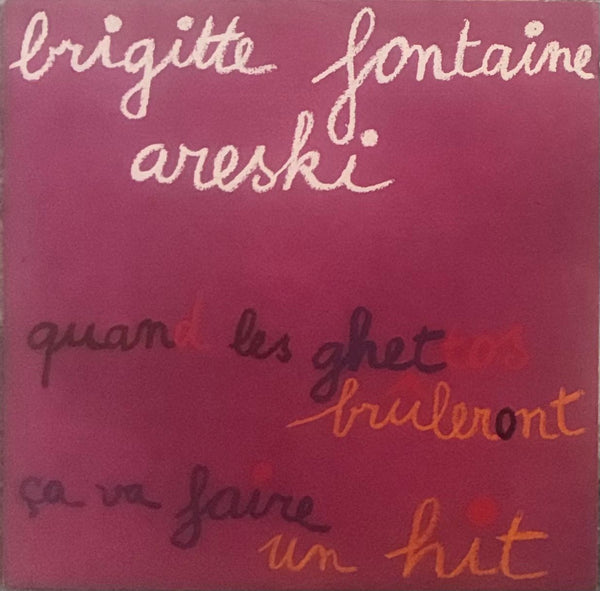 brigitte fontaine
areski
quand les ghettos
brûleront
ça va faire
un hit